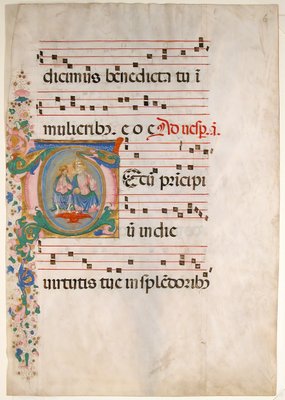 dicimus benedicta tu ī
mulieribꝫ. e o e Ad uesp̄. a.
Ecū prīcipi
ū in die
uirtutis tue in splēdoribꝫ